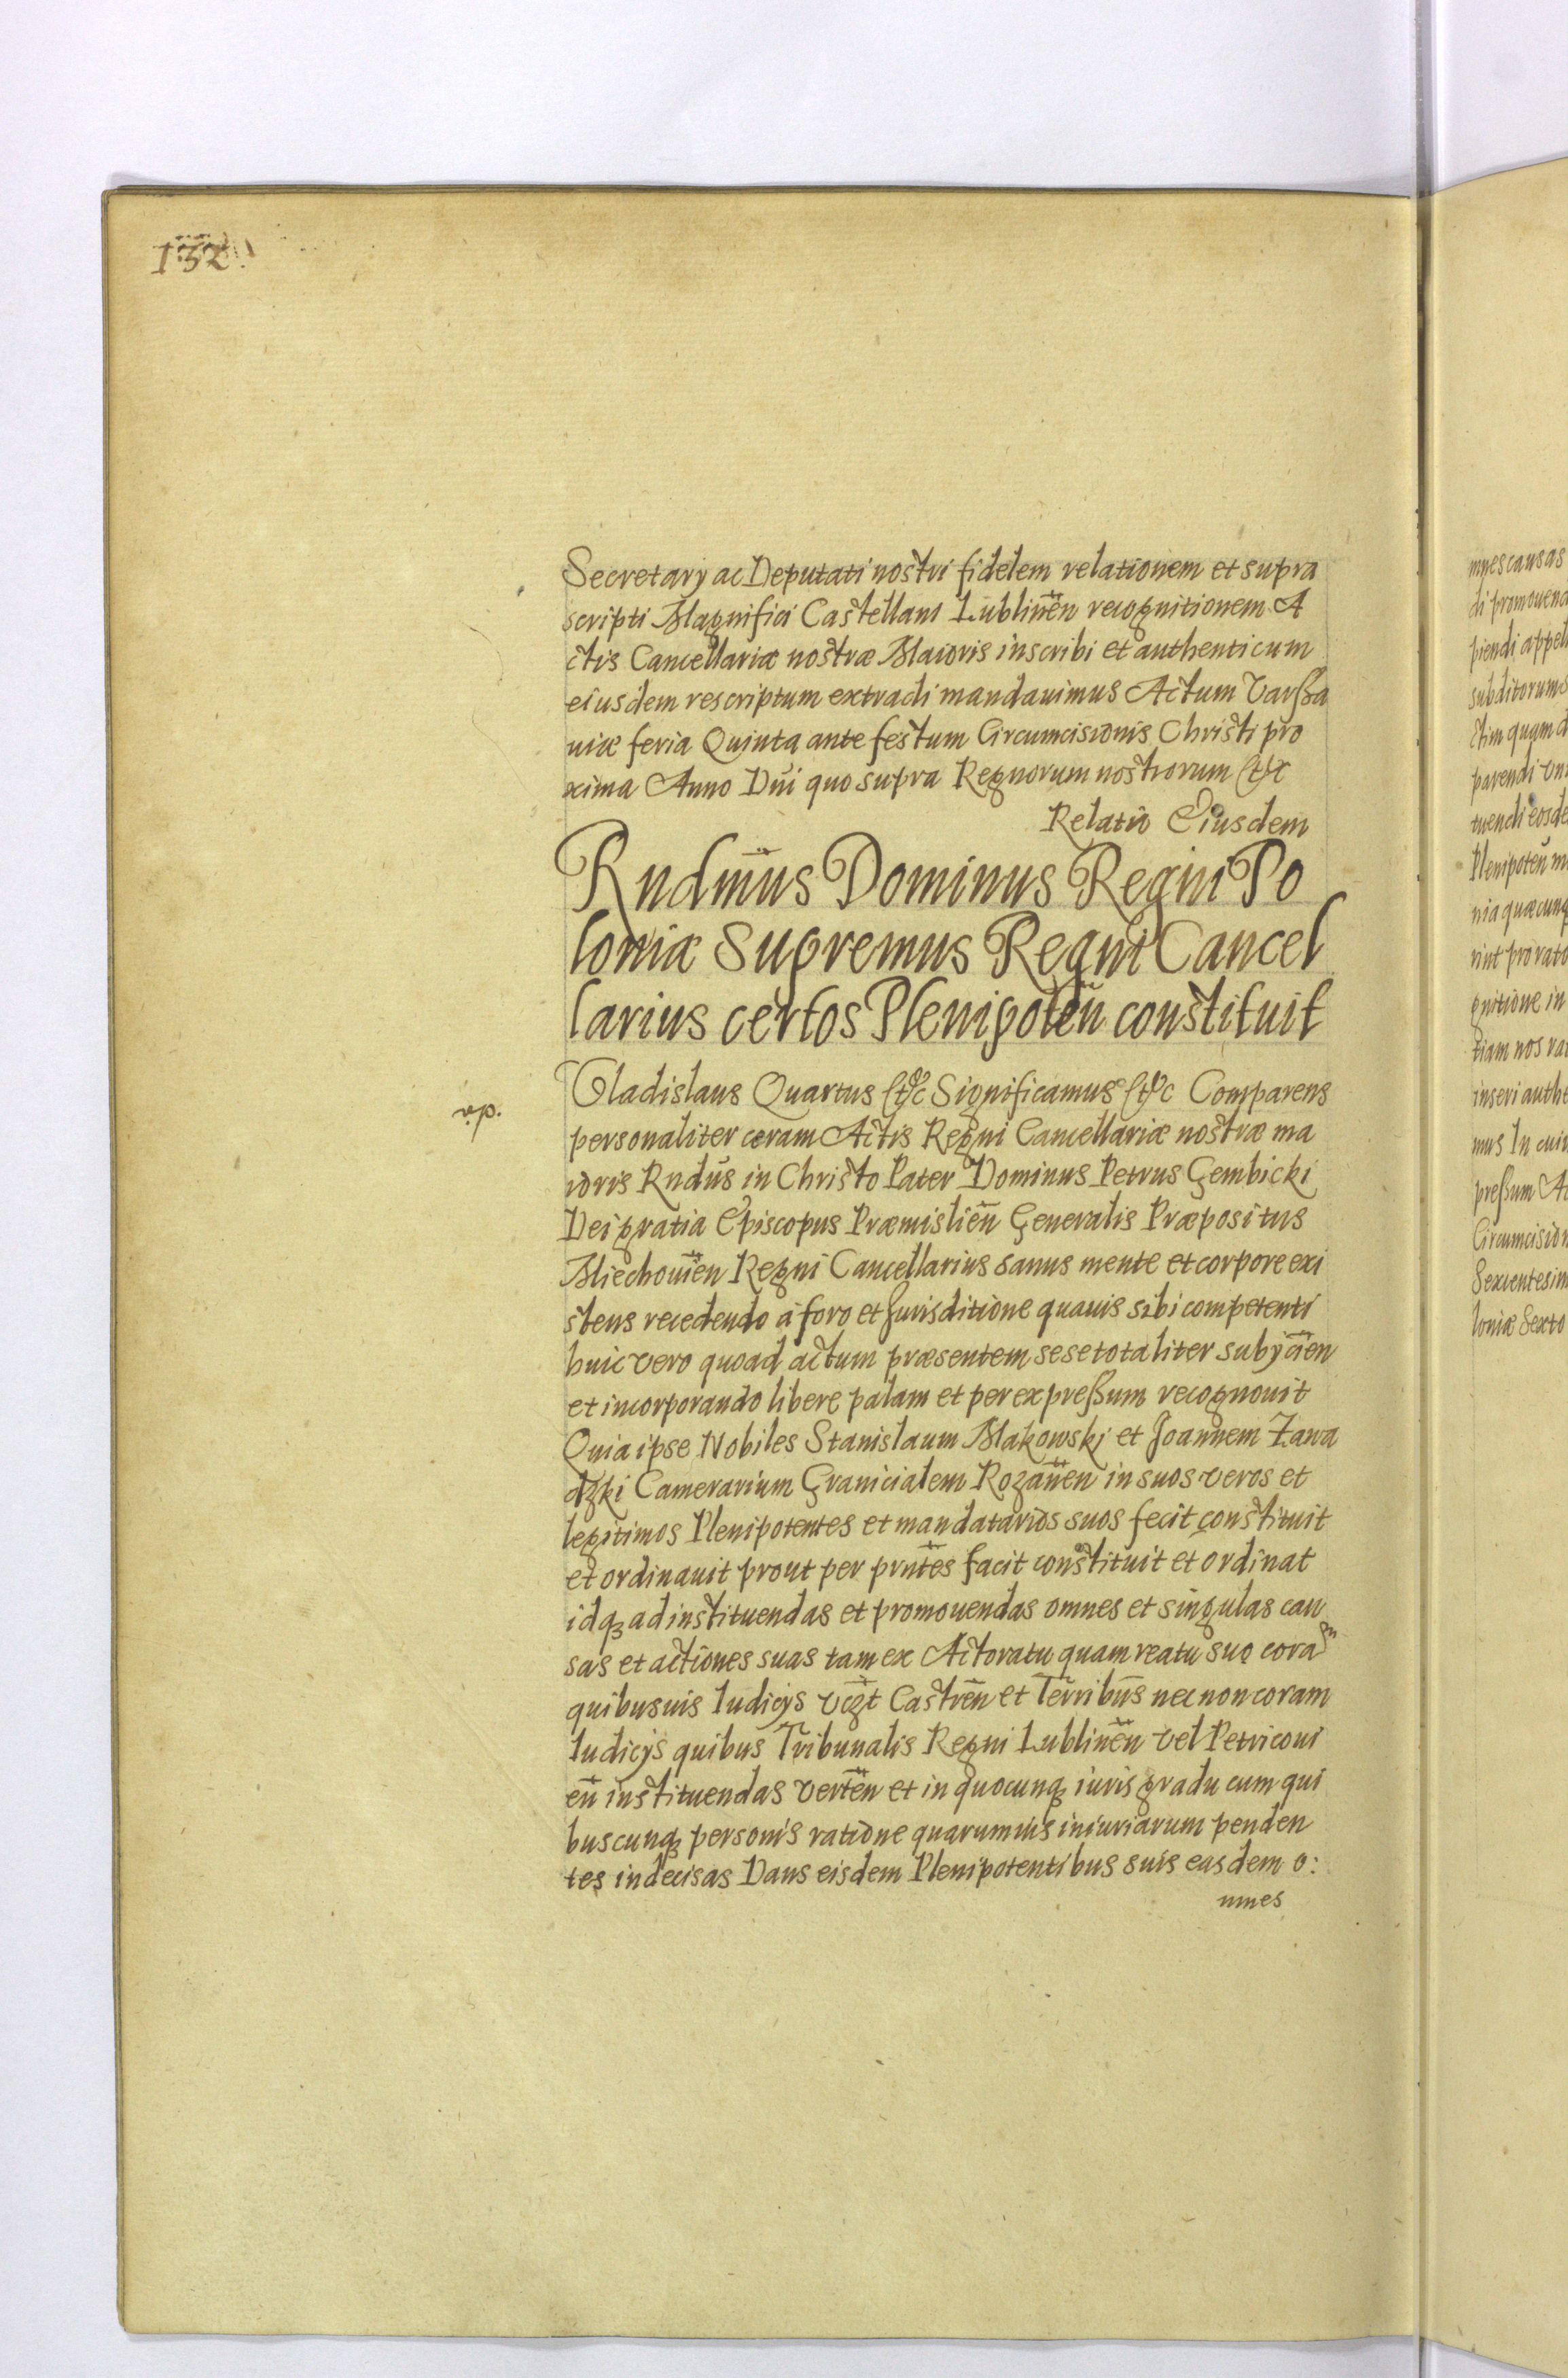 132
Secretarÿ ac Deputati nostri fidelem relationem et supra
scripti Magnifici Castellani Lublineñ recognitionem A
ctis Cancellariæ nostræ Maioris inscribi et authenticum
eiusdem rescriptum extradi mandauimus Actum Varßa
uiæ feria Quinta ante festum Circumcisionis Christi pro
xima Anno Dñi quo supra Regnorum nostrorum &c
Relatio Eiusdem
Rndm̃us Dominus Regni Po
loniæ Supremus Regni Cancel
larius certos Plenipoteñ constituit
Vladislaus Quartus &c Significamus &c Comparens
personaliter coram Actis Regni Cancellariæ nostræ ma
ioris Rndũs in Christo Pater Dominus Petrus Gembicki
Dei gratia Episcopus Præmislieñ Generalis Præpositus
Miechouieñ Regni Cancellarius sanus mente et corpore exi
stens recedendo à foro et Jurisditione quauis sibi competenti
huic vero quoad actum præsentem sese totaliter subÿcieñ
et incorporando libere palam et per expreßum recognouit
Quia ipse Nobiles Stanislaum Makowski et Joannem Zawa
dzki Camerarium Granicialem Rozaneñ in suos veros et
legitimos Plenipotentes et mandatarios suos fecit constituit
et ordinauit prout per prñtes facit constituit et ordinat
idqꝫ ad instituendas et promouendas omnes et singulas cau
sas et actiones suas tam ex Actoratu quam reatu suo coram
quibusuis Iudicÿs vꝫt Castreñ et Terribũs nec non coram
Iudicÿs quibus Tribunalis Regni Lublineñ vel Petricoui
eñ instituendas verteñ et in quocunqꝫ iuris gradu cum qui
buscunqꝫ personis ratione quarumuis iniuriarum penden
tes indecisas Dans eisdem Plenipotentibus suis easdem o:
mnes
mnes causas
di promouend
piendi appell
subditorum s
ctim quam d
parendi
tuendi eosde
Plenipoteñ m
nia quæcunq
rint pro rato
gnitione in
tiam nos
inseri authe
mus In cuiu
preßum Ac
Circumcision
Sexcentesim
loniæ Sexto